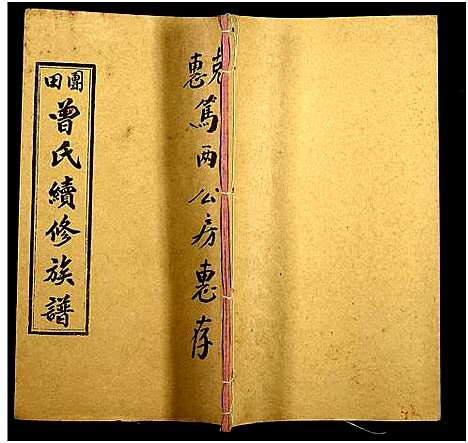 團田
曾氏續修族譜
克惠篤两公房惠存